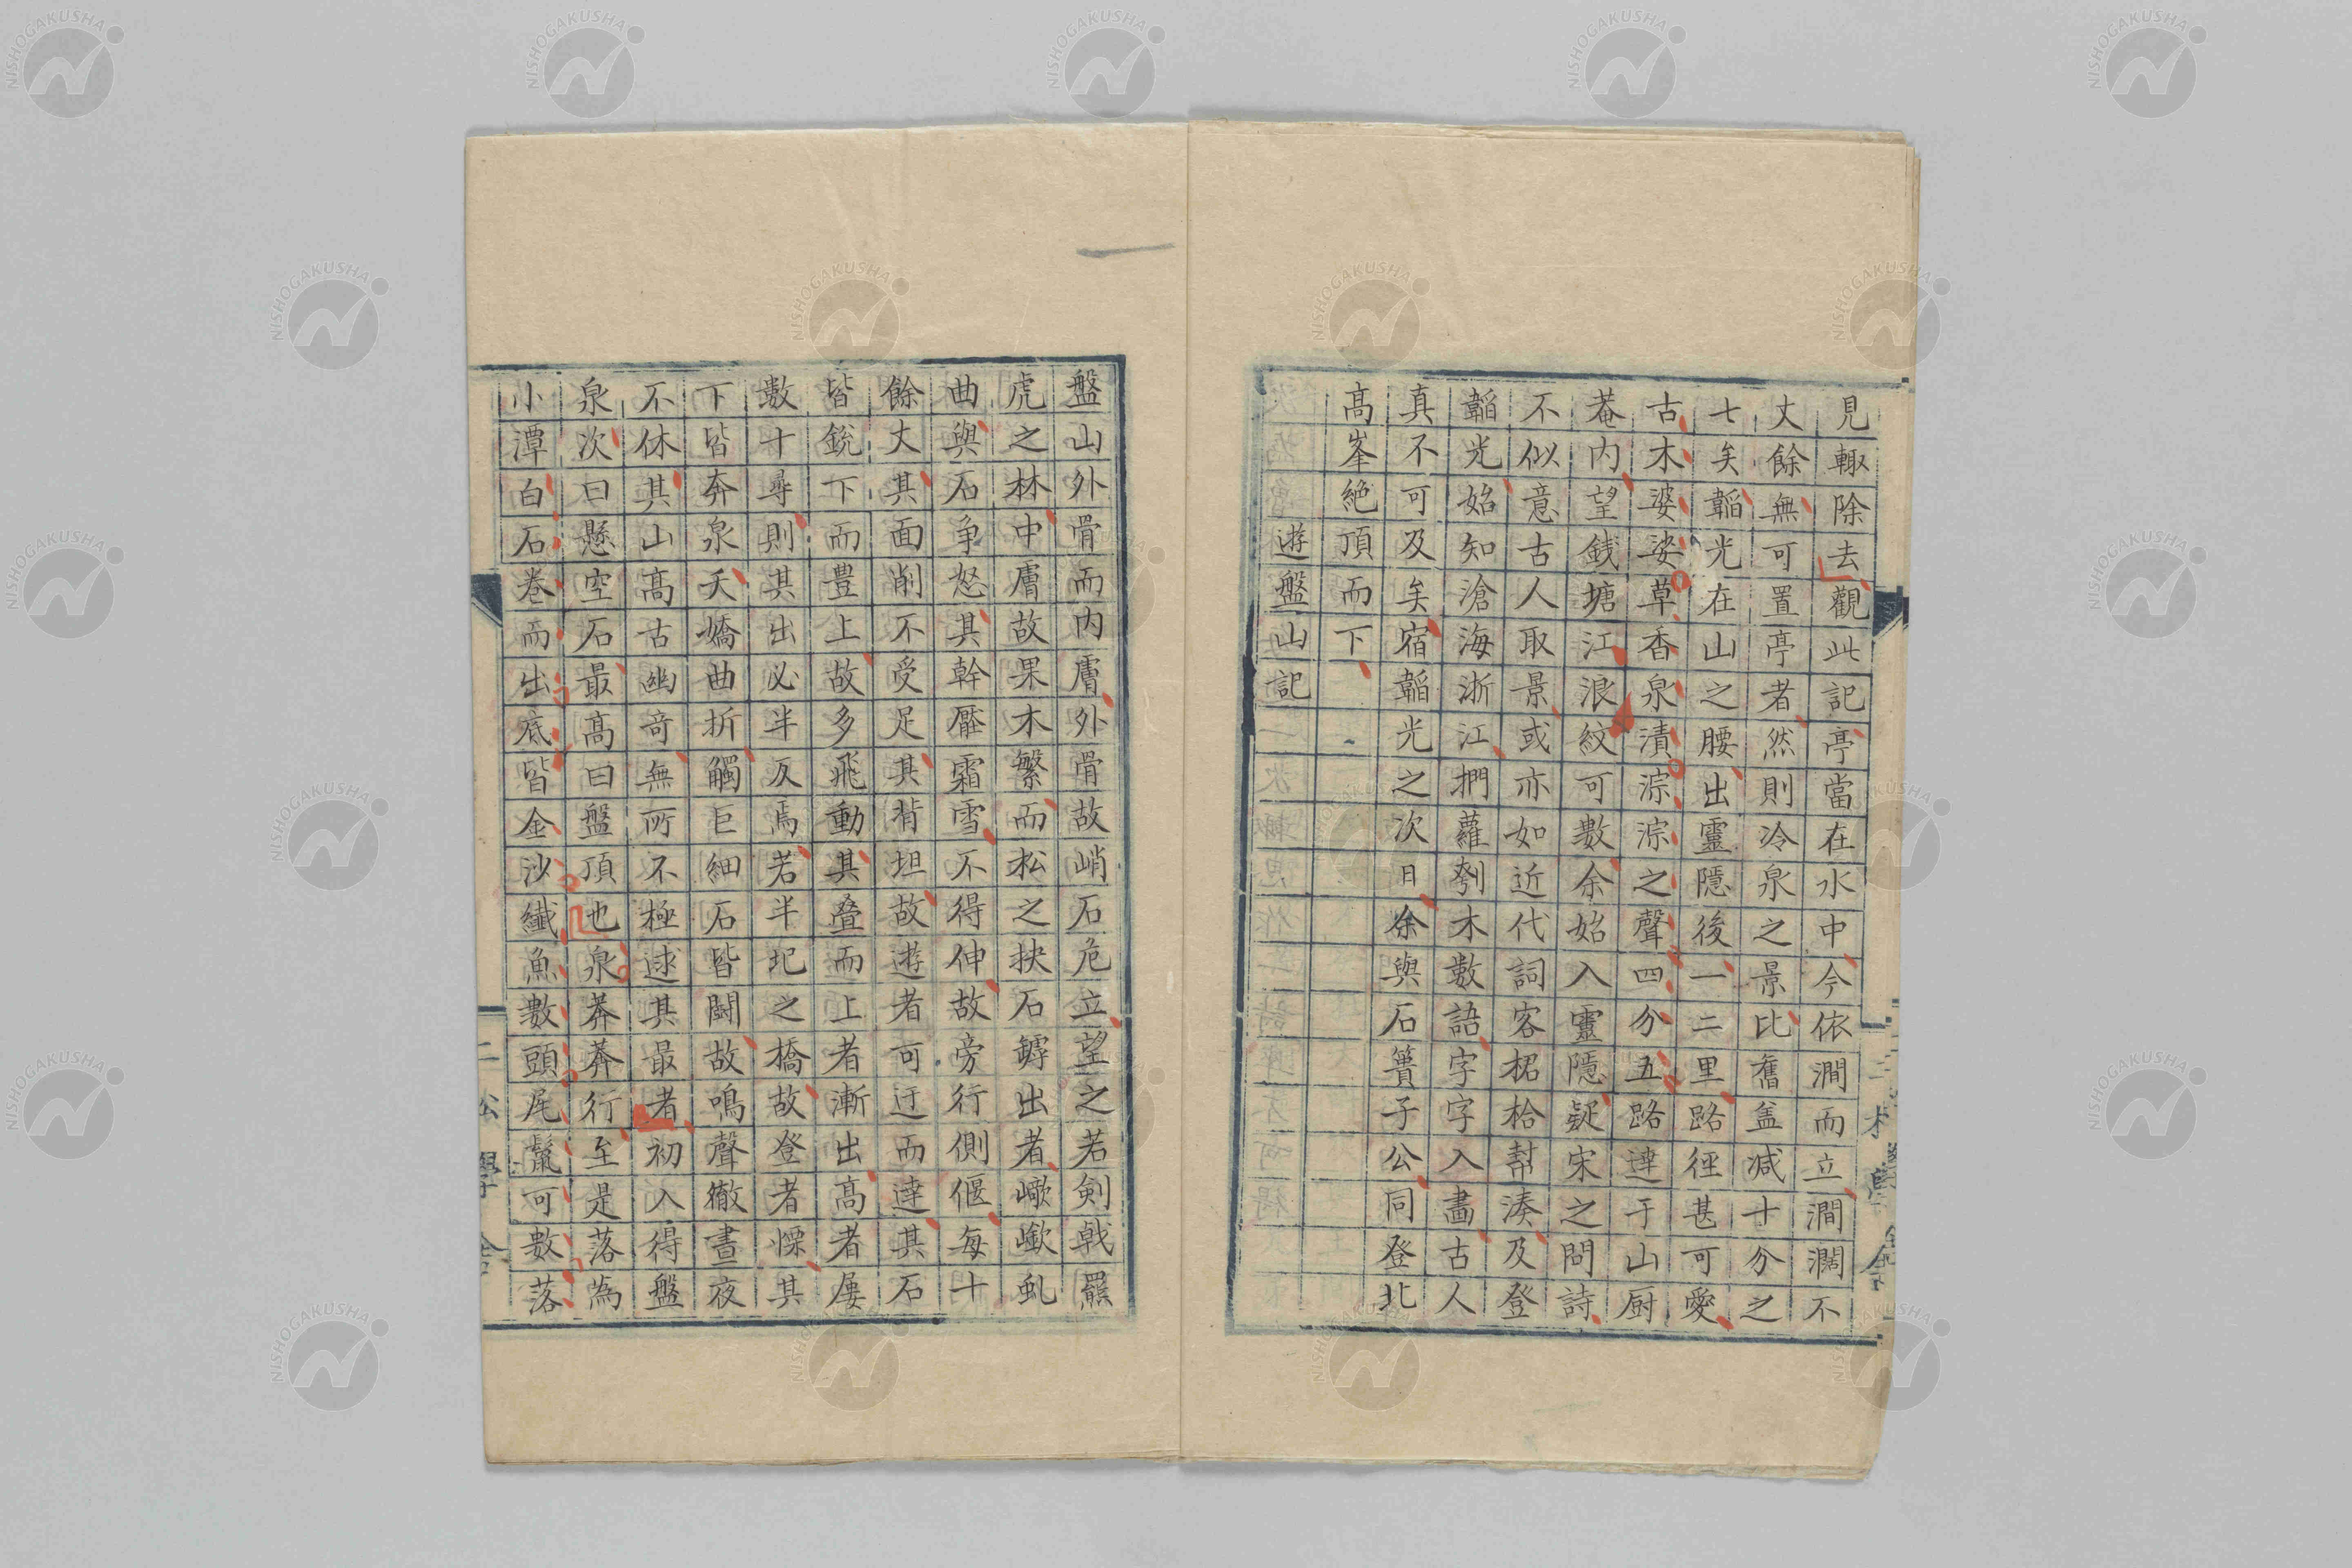 見輙除去觀此記亭當在水中今依澗而立澗濶不
丈餘無可置亭者然則冷泉之景比舊盆减十分之
七矣韜光在山之腰出靈隱後一二里路徑甚可愛
古木婆娑草香泉漬淙淙之聲四分五路達于山厨
菴内望銭塘江浪紋可數余始入靈隱疑宋之問詩
不似意古人取景或亦如近代詞客捃拾幇湊及登
韜光始知滄海浙江捫蘿刳木數語字字入畫古人
真不可及矣宿韜光之次日余與石簣子公同登北
高峯絶頂而下
遊盤山記
盤山外骨而内膚外骨故峭石危立望之若剣戟羆
虎之林中膚故果木繁而松之抉石罅出者巘嶔虬
曲與石争怒其幹壓霜雪不得伸故旁行側偃每十
餘丈其面削不受足其背坦故遊者可迂而達其石
皆鋭下而豊上故多飛動其叠而上者漸出高者屡
數十尋則其出必半仄焉若半圮之橋故登者慄其
下皆奔泉夭嬌曲折觸巨細石皆鬪故鳴聲徹晝夜
不休其山高古幽奇無所不極逑其最者初入得盤
泉次曰懸空石最高曰盤頂也泉莽莽行至是落為
小潭白石卷而出底皆金沙纖魚數頭尾鬣可數落
二松學舍
二松學舍
NISHOGAKUSHA